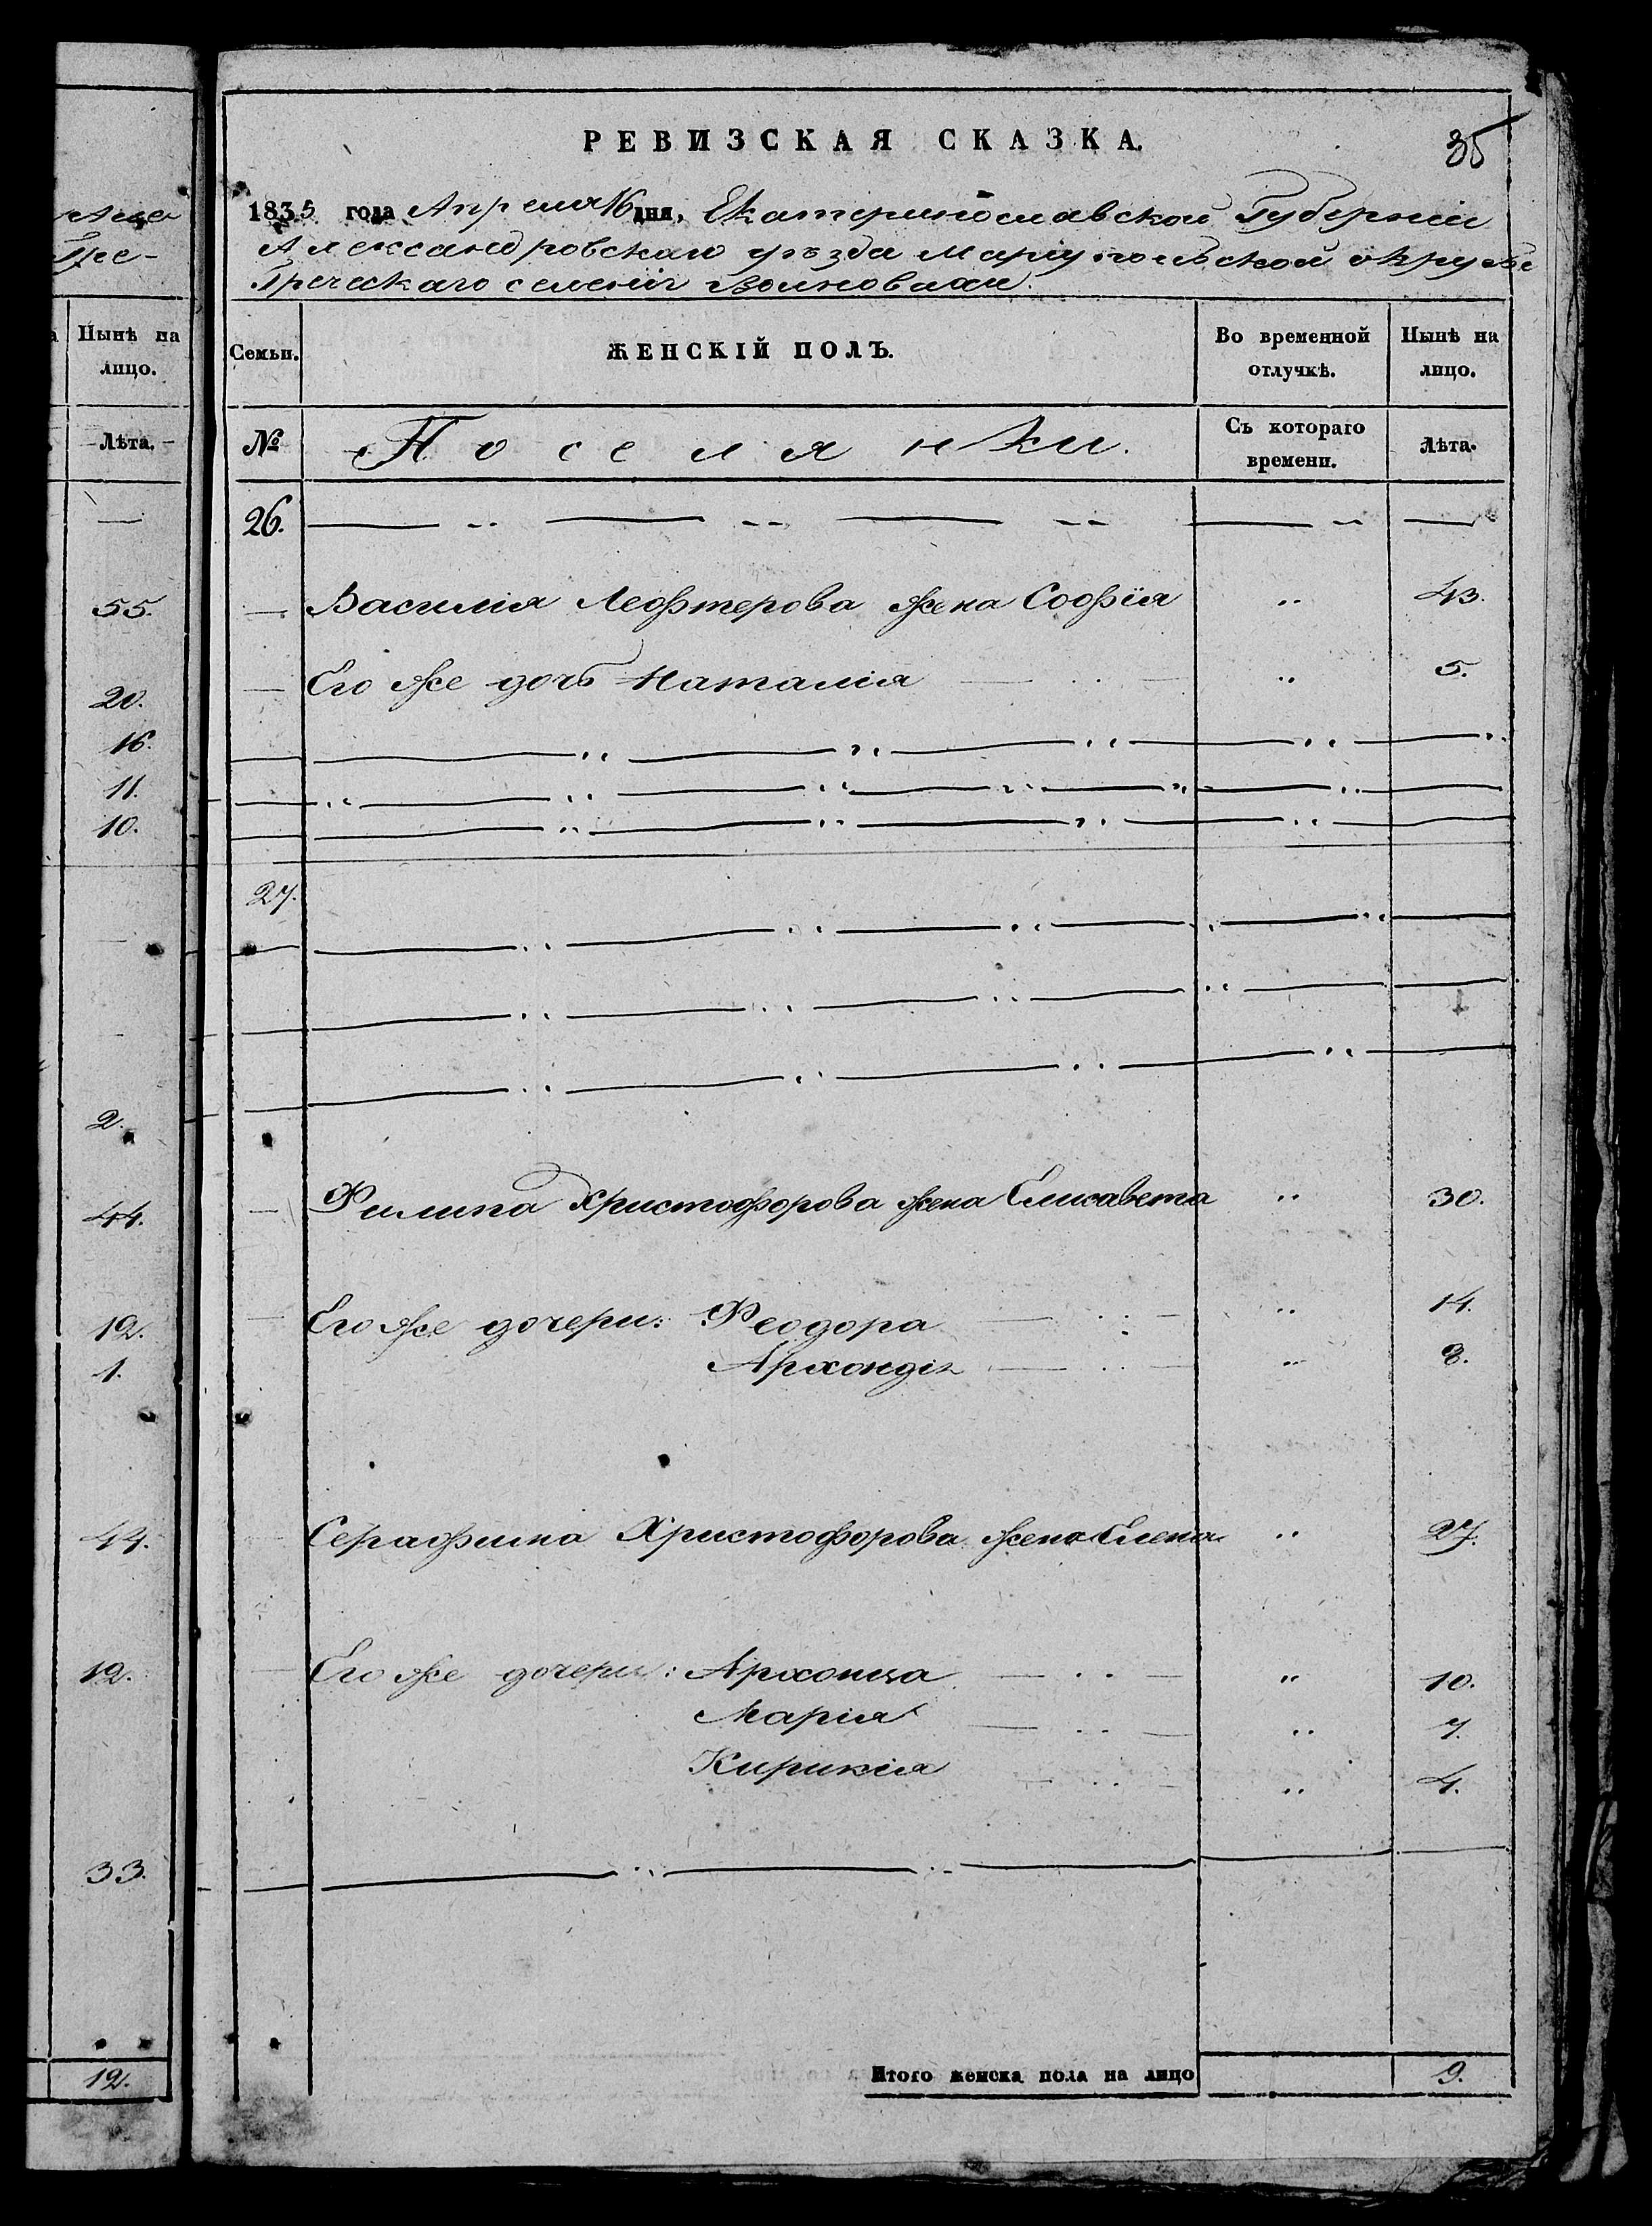 Але
Гре-
Нынѣ на
лицо.
Лѣта.
55.
20.
16.
11.
10.
2.
44.
12.
1.
44.
12.
33.
12.
РЕВИЗСКАЯ СКАЗКА.
35
1835 года Апреля 16 дня, Екатеринославской Губерніи
Александровскаго уѣзда Маріупольской округѣ
Греческаго селенія Волновахи.
Семьи.
ЖЕНСКІЙ ПОЛЪ.
Во временной отлучкѣ.
Нынѣ на лицо.
№
Поселянки.
Съ котораго времени.
Лѣта.
26.
Василія Леофтерова жена Софія " 43.
Его же дочь Наталія " 5.
27.
Филипа Христофорова жена Елисавета " 30.
Его же дочери: Феодора " 14.
Архондія " 8.
Серафима Христофорова жена Елена " 27.
Его же дочери: Архонца " 10.
Марія " 7.
Кирикія " 4.
Итого женска пола на лицо 9.